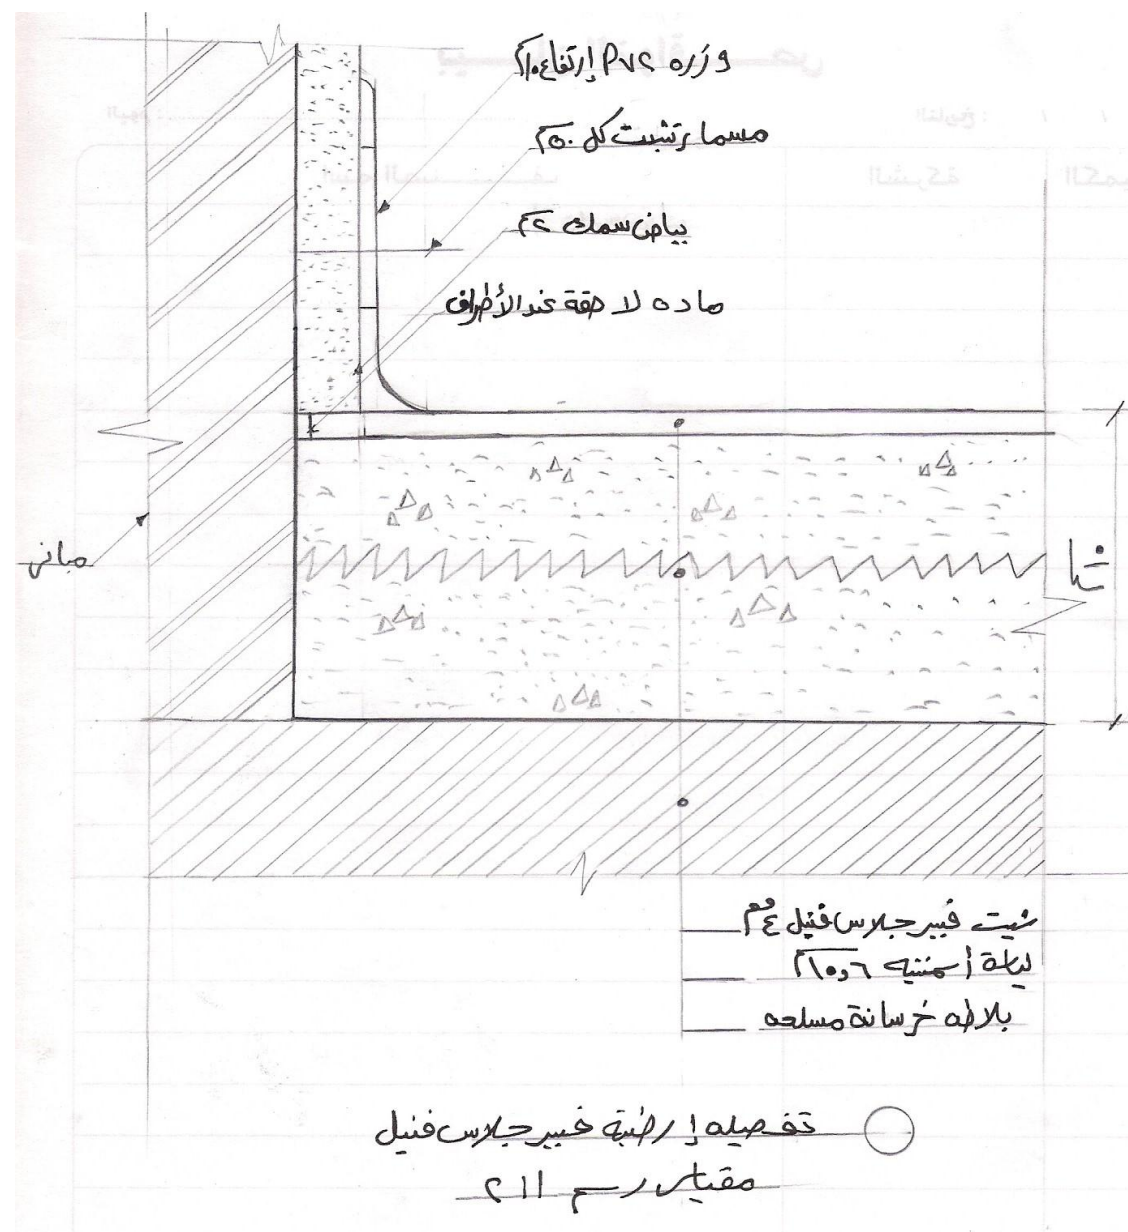 وزره PVC إرتفاع ١٠سم
مسمار تثبيت كل ٥٠سم
بياض سمك ٢سم
ماده لاصقة عند الأطراف
مبانى
شيت فيبر جلاس فنيل ٤مم
لياسة أسمنتيه
بلاطه خرسانة مسلحه
تفصيله إرضية فيبر جلاس فنيل
مقياس رسم ٢١١